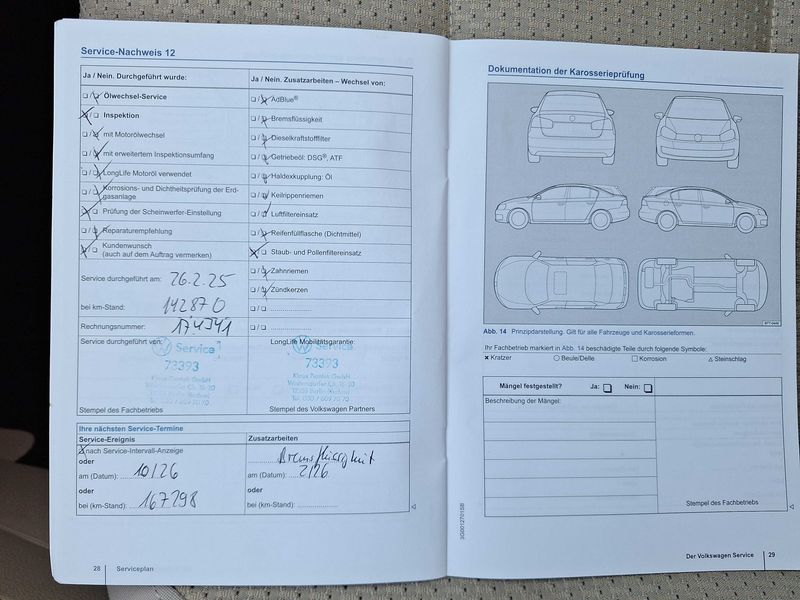 Service-Nachweis 12
Ja / Nein. Durchgeführt wurde:
Ölwechsel-Service
Inspektion
mit Motorölwechsel
mit erweitertem Inspektionsumfang
LongLife Motoröl verwendet
Korrosions- und Dichtheitsprüfung der Erd-
gasanlage
Prüfung der Scheinwerfer-Einstellung
Reparaturempfehlung
Kundenwunsch
(auch auf dem Auftrag vermerken)
Service durchgeführt am: 26.2.25
bei km-Stand: 142870
Rechnungsnummer:
Service durchgeführt von:
Service
73393
Stempel des Fachbetriebs
Ja / Nein. Zusatzarbeiten – Wechsel von:
AdBlue®
Bremsflüssigkeit
Dieselkraftstofffilter
Getriebeöl: DSG®, ATF
Haldexkupplung: Öl
Keilrippenriemen
Luftfiltereinsatz
Reifenfüllflasche (Dichtmittel)
Staub- und Pollenfiltereinsatz
Zahnriemen
Zündkerzen
LongLife Mobilitätsgarantie:
Service
73393
Klaus Ziontek GmbH
Stempel des Volkswagen Partners
Ihre nächsten Service-Termine
Service-Ereignis
nach Service-Intervall-Anzeige
oder
am (Datum): 10/26
oder
bei (km-Stand): 167298
Zusatzarbeiten
Bremsflüssigkeit
am (Datum): 2/26
oder
bei (km-Stand):
28 Serviceplan
Dokumentation der Karosserieprüfung
Abb. 14 Prinzipdarstellung. Gilt für alle Fahrzeuge und Karosserieformen.
Ihr Fachbetrieb markiert in Abb. 14 beschädigte Teile durch folgende Symbole:
Kratzer Beule/Delle Korrosion Steinschlag
Mängel festgestellt? Ja: Nein:
Beschreibung der Mängel:
Stempel des Fachbetriebs
Der Volkswagen Service 29